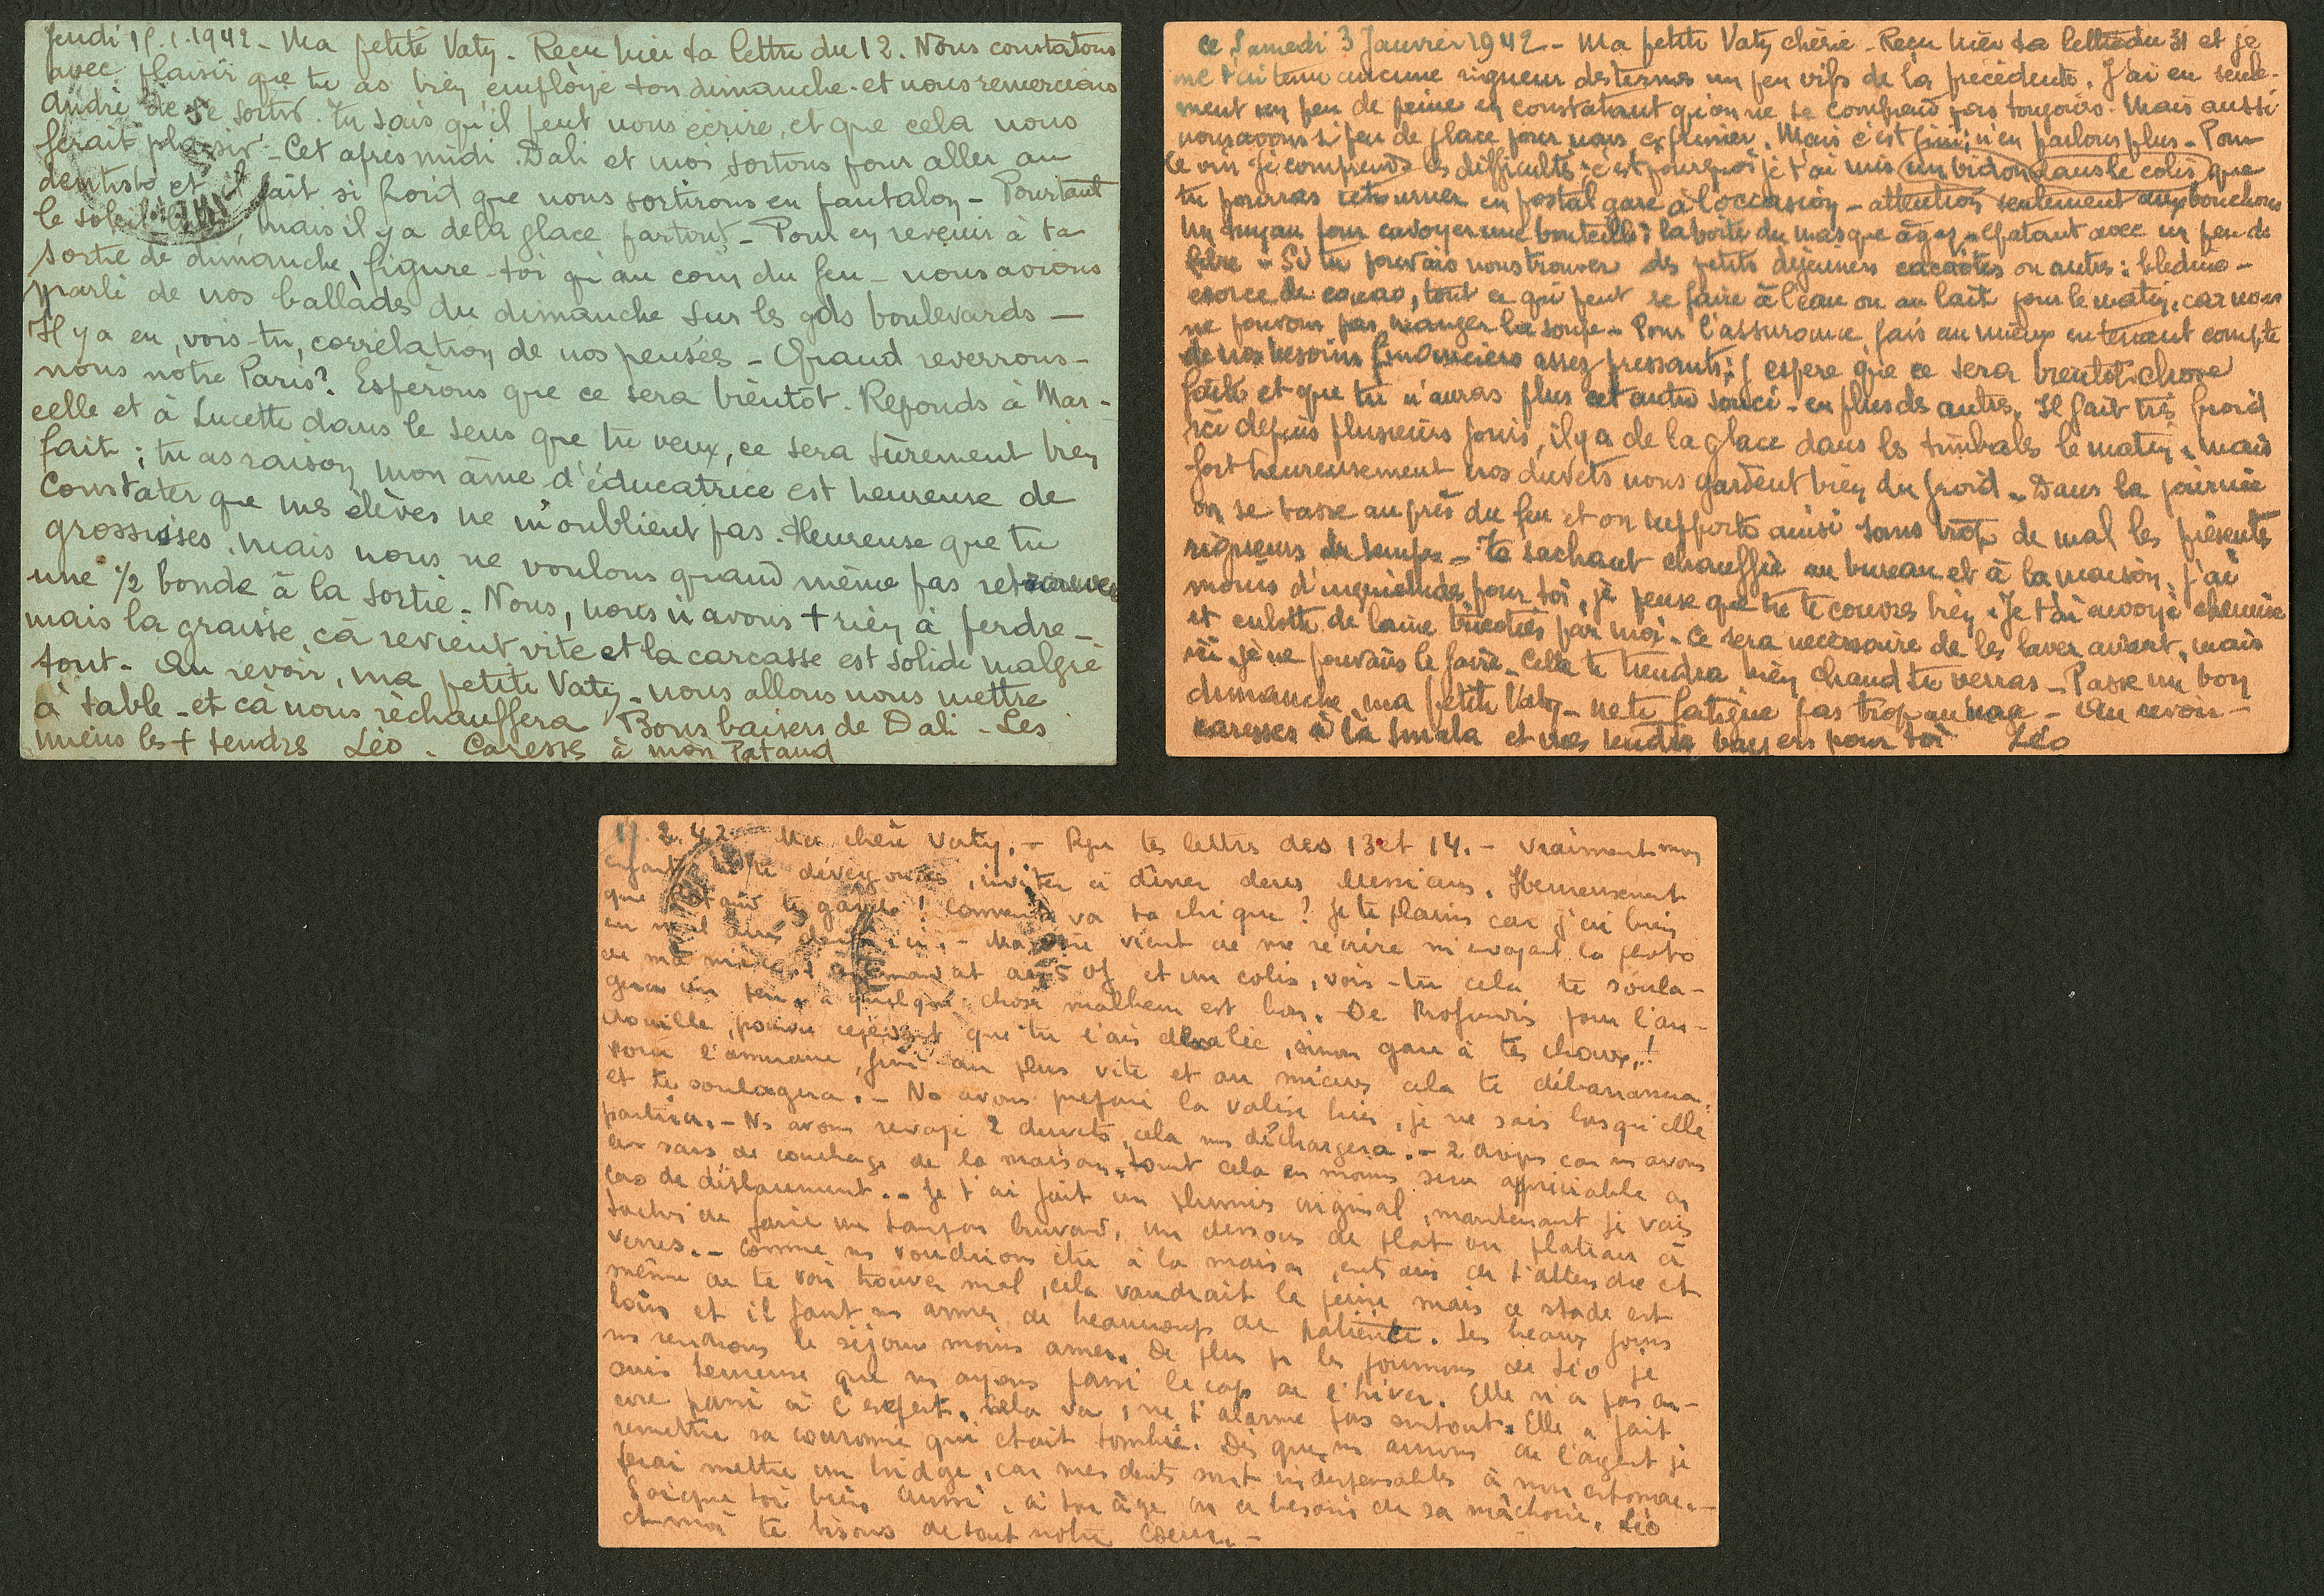 Jeudi 15.1.1942 - Ma petite Vaty. Reçu hier ta lettre du 12. Nous constatons
avec plaisir que tu as bien employé ton dimanche et nous remercions
André de te sortir. Tu sais qu'il peut nous écrire, et que cela nous
ferait plaisir. Cet après midi Dali et moi sortons pour aller au
dentiste et il fait si froid que nous sortirons en pantalon - Pourtant
le soleil mais il y a de la glace partout - Pour en revenir à ta
sortie de dimanche, figure-toi qu'au coin du feu - nous avions
parlé de nos ballades du dimanche sur les gds boulevards -
Il y a eu, vois-tu, corrélation de nos pensées - Quand reverrons-
nous notre Paris? Espérons que ce sera bientôt. Réponds à Mar-
celle et à Lucette dans le sens que tu veux, ce sera sûrement bien
fait ; tu as raison mon âme d'éducatrice est heureuse de
constater que mes élèves ne m'oublient pas. Heureuse que tu
grossisses, mais nous ne voulons quand même pas retrouver
une 1/2 bonde à la sortie - Nous, nous n'avons + rien à perdre -
mais la graisse çà revient vite et la carcasse est solide malgré
tout - Au revoir, ma petite Vaty - nous allons nous mettre
à table - et çà nous réchauffera Bons baisers de Dali - Les
miens les + tendres Léo - Caresses à mon Pataud
ce Samedi 3 Janvier 1942 - Ma petite Vaty chérie - Reçu hier ta lettre du 31 et je
ne t'ai tenu aucune rigueur des termes un peu vifs de la précédente. J'ai eu seule-
ment un peu de peine en constatant qu'on ne se comprend pas toujours. Mais aussi
nous avons si peu de place pour nous exprimer. Mais c'est fini; n'en parlons plus - Pour
le vin je comprends les difficultés ; c'est pourquoi je t'ai mis un bidon dans le colis que
tu pourras retourner en postal gare à l'occasion - attention seulement aux bouchons
Un tuyau pour envoyer une bouteille : la boîte du masque à gaz - épatant avec un peu de
fibre - Si tu pouvais nous trouver des petits déjeuners cacaotés ou autres : blédine -
écorce de cacao, tout ce qui peut se faire à l'eau ou au lait pour le matin, car nous
ne pouvons pas manger la soupe - Pour l'assurance, fais au mieux en tenant compte
de nos besoins financiers assez pressants ; j'espère que ce sera bientôt chose
faite et que tu n'auras plus cet autre souci - en plus des autres. Il fait très froid
ici depuis plusieurs jours, il y a de la glace dans les timbales le matin, mais
fort heureusement nos duvets nous gardent bien du froid - Dans la journée
on se tasse auprès du feu et on supporte ainsi sans trop de mal les présentes
rigueurs du temps - Te sachant chauffée au bureau et à la maison, j'ai
moins d'inquiétude pour toi, je pense que tu te couvres bien. Je t'ai envoyé chemise
et culotte de laine tricotées par moi - Ce sera nécessaire de les laver avant, mais
ici je ne pouvais le faire - Cela te tiendra bien chaud tu verras - Passe un bon
dimanche, ma petite Vaty - ne te fatigue pas trop au - Au revoir -
caresses à la smala et nos tendres baisers pour toi Léo
17.2.42 - Ma chère Vaty. - Reçu tes lettres des 13 et 14. - Vraiment mon
enfant dévergondée, inviter à dîner deux Messieurs. Heureusement
que Pataud te garde ! Comment va ta chique ? Je te plains car j'ai bien
eu mal aux dents ici. - vient de me réécrire m'envoyant la photo
de ma mandat de 50f et un colis, vois-tu cela te soula-
gera un peu, à quelque chose malheur est bon. De Profundis pour l'an-
douille, pourvu cependant que tu l'ais dessalée, sinon gare à tes choux..!
Pour l'armoire, fini au plus vite et au mieux cela te débarrassera,
et te soulagera. - Ns avons préparé la valise hier, je ne sais lorsqu'elle
partira. - Ns avons renvoyé 2 duvets, cela ns déchargera. - 2 draps car ns avons
les sacs de couchage de la maison. Tout cela en moins sera appréciable en
cas de déplacement. - Je t'ai fait un plumier original, maintenant je vais
tâcher de faire un tampon buvard, un dessous de plat ou plateau à
verres. - Comme ns voudrions être à la maison, entrain de t'attendre et
même de te voir trouver mal, cela vaudrait la peine mais ce stade est
loin et il faut ns armer de beaucoup de patience. Les beaux jours
ns rendrons le séjour moins amer. De plus pr les poumons de Léo je
suis heureuse que ns ayons passé le cap de l'hiver. Elle n'a pas en-
core passé à l'expert, cela va, ne t'alarme pas surtout. Elle a fait
remettre sa couronne qui était tombée. Dès que ns aurons de l'argent je
ferai mettre un bridge, car mes dents sont indispensables à mon estomac. -
Soigne toi bien aussi, à ton âge on a besoin de sa mâchoire. Léo
et moi te bisons de tout notre coeur. -